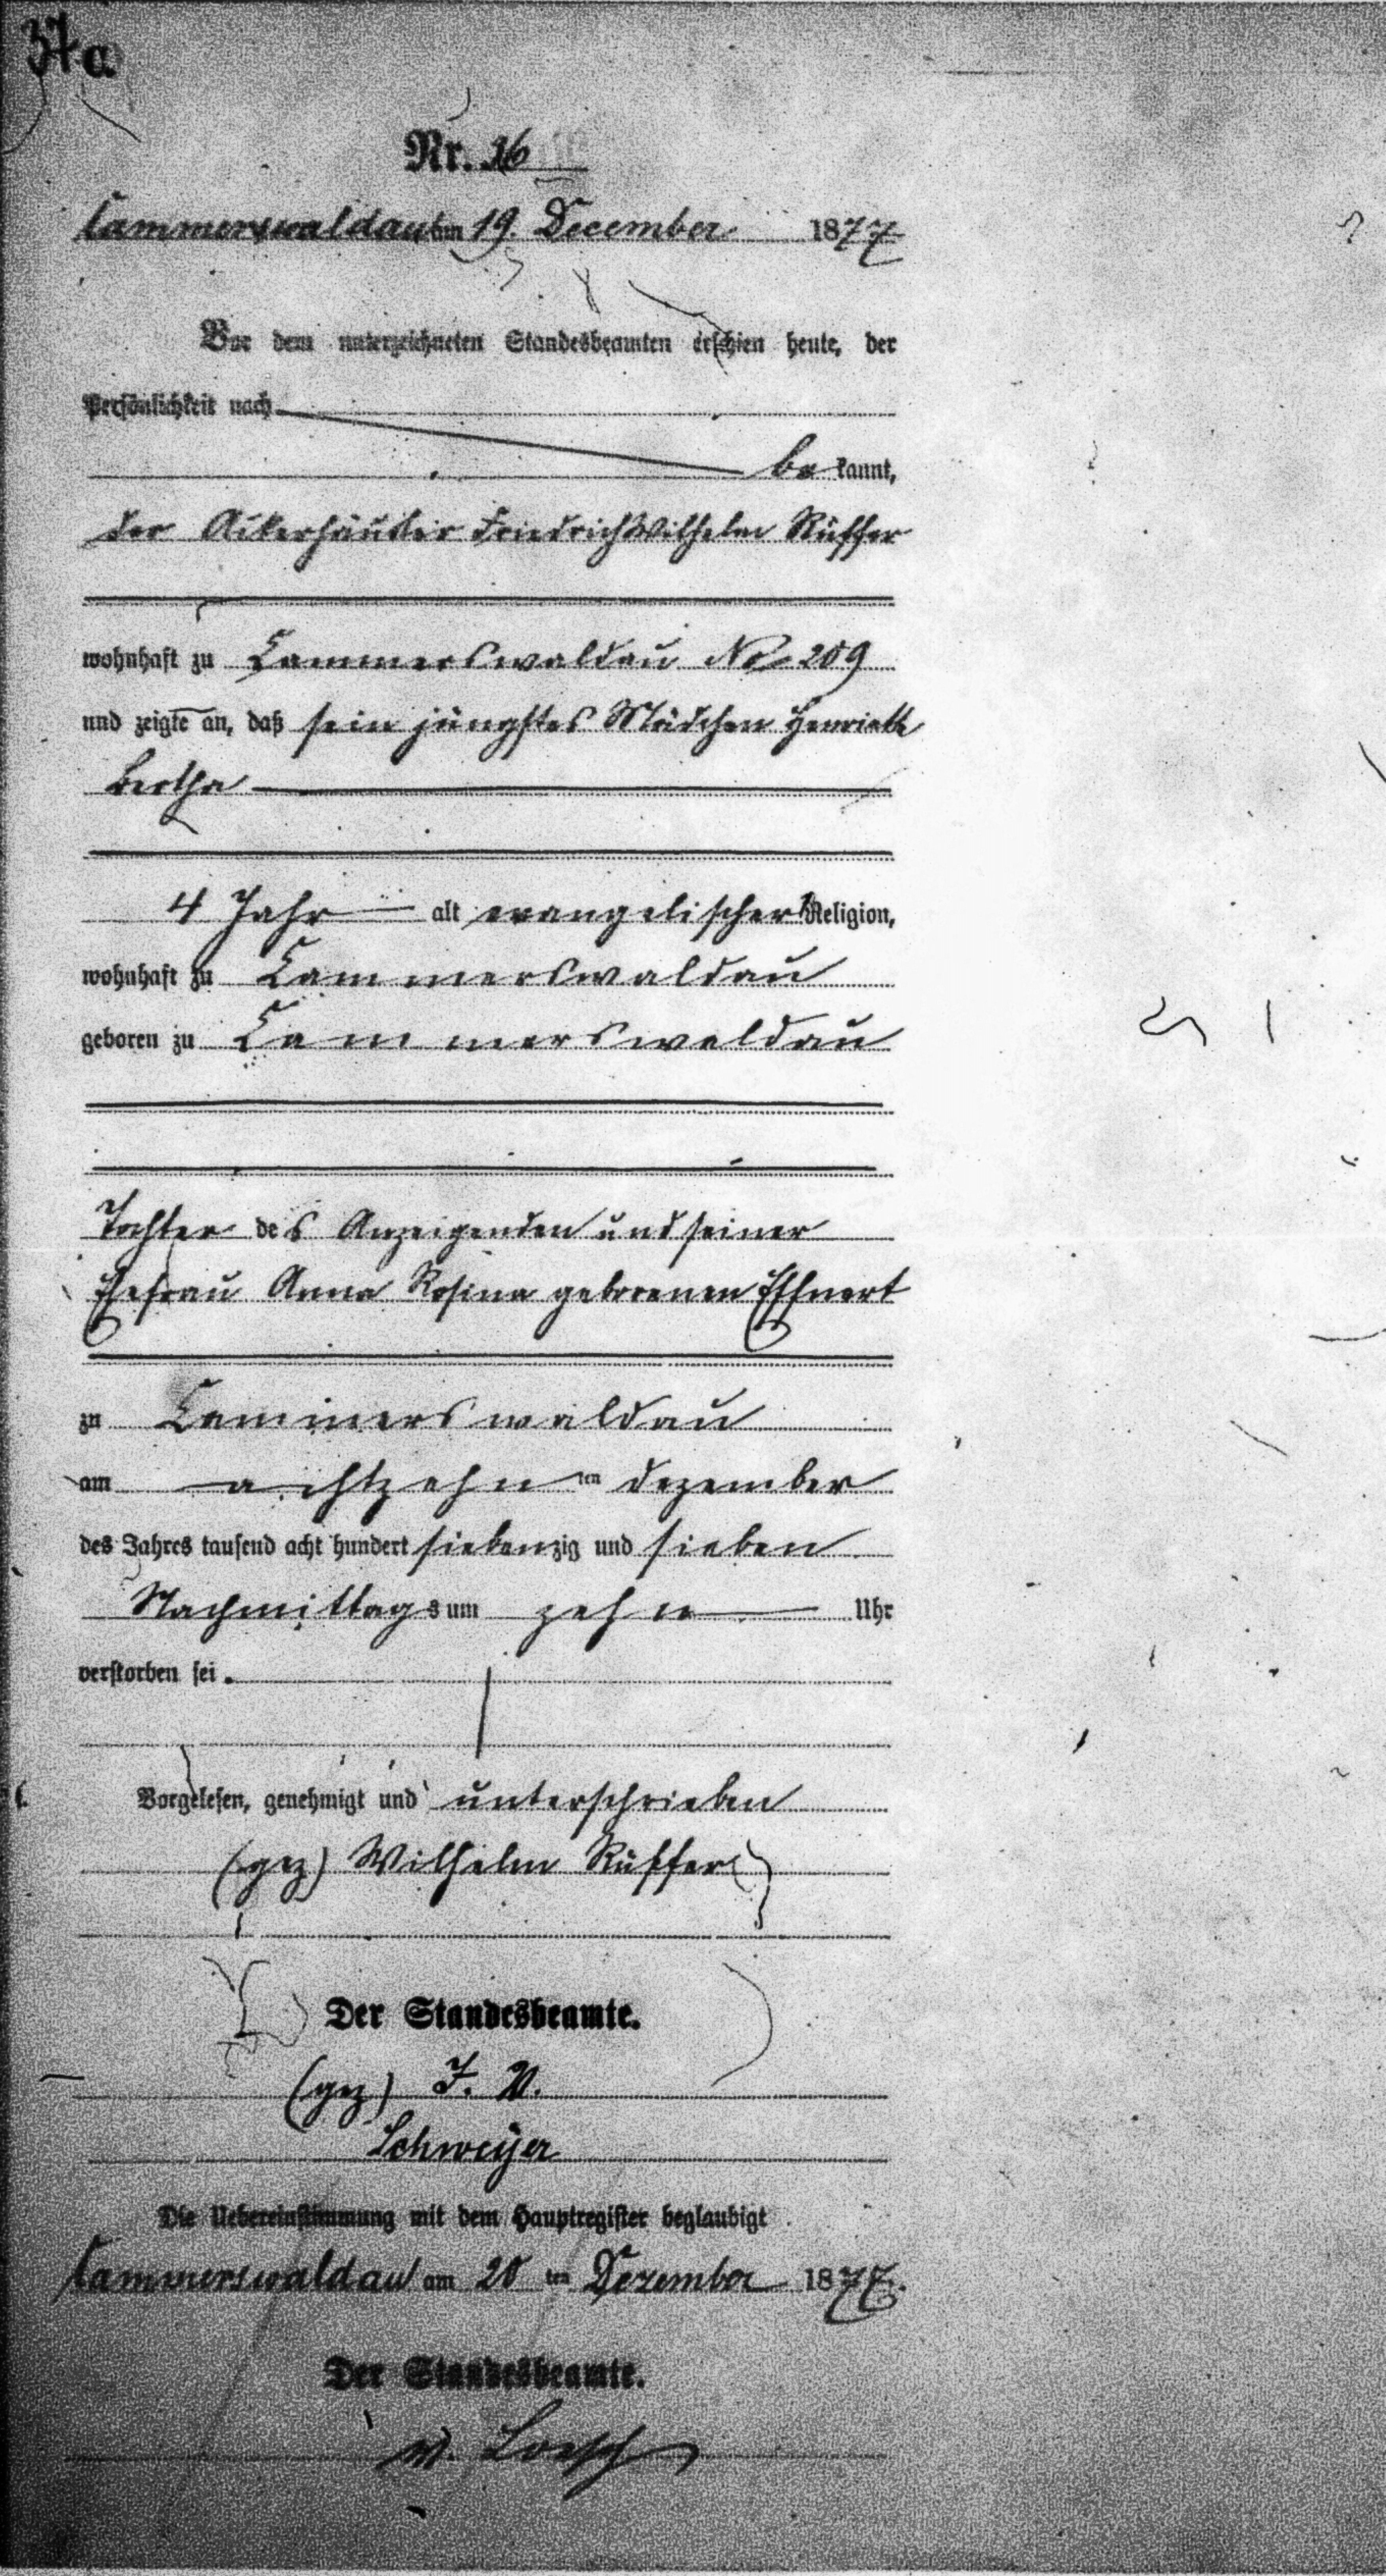 37a
Nr. 16
Cammerswaldau am 19. December 1877
Vor dem unterzeichneten Standesbeamten erschien heute, der
Persönlichkeit nach
be kannt,
der Ackerhäusler Friedrich Wilhelm Rüffer
wohnhaft zu Cammerswaldau No 209
und zeigte an, daß sein jüngstes Mädchen Henriette
Bertha
4 Jahr alt evangelischer Religion,
wohnhaft zu Cammerswaldau
geboren zu Cammerswaldau
Tochter des Anzeigenden und seiner
Ehefrau Anna Rosina geborenen
zu Cammerswaldau
am achtzehn ten Dezember
des Jahres tausend acht hundert siebenzig und sieben
Nachmittags um zehn Uhr
verstorben sei.
Vorgelesen, genehmigt und unterschrieben
(gez) Wilhelm Rüffer
Der Standesbeamte.
(gez) J. V.
Schweijer
Die Uebereinstimmung mit dem Hauptregister beglaubigt
Cammerswaldau am 20 ten Dezember 1877.
Der Standesbeamte.
v. Loesch